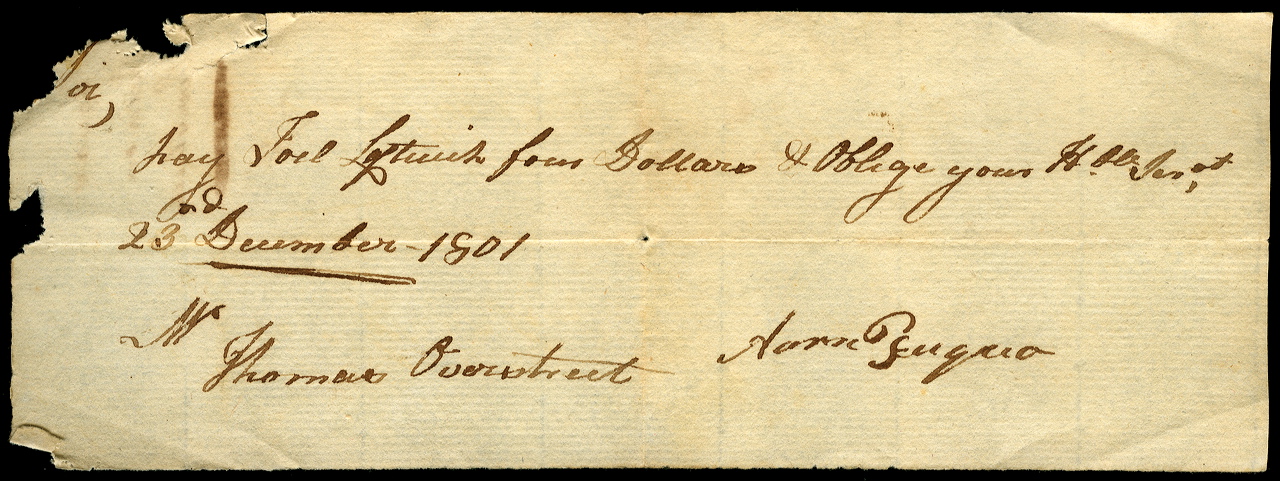 Sir,
pay Joel Leftwich four Dollars & Oblige your Hble Servt
23rd December - 1801
Mr
Thomas Overstreet Aorn Fuqua